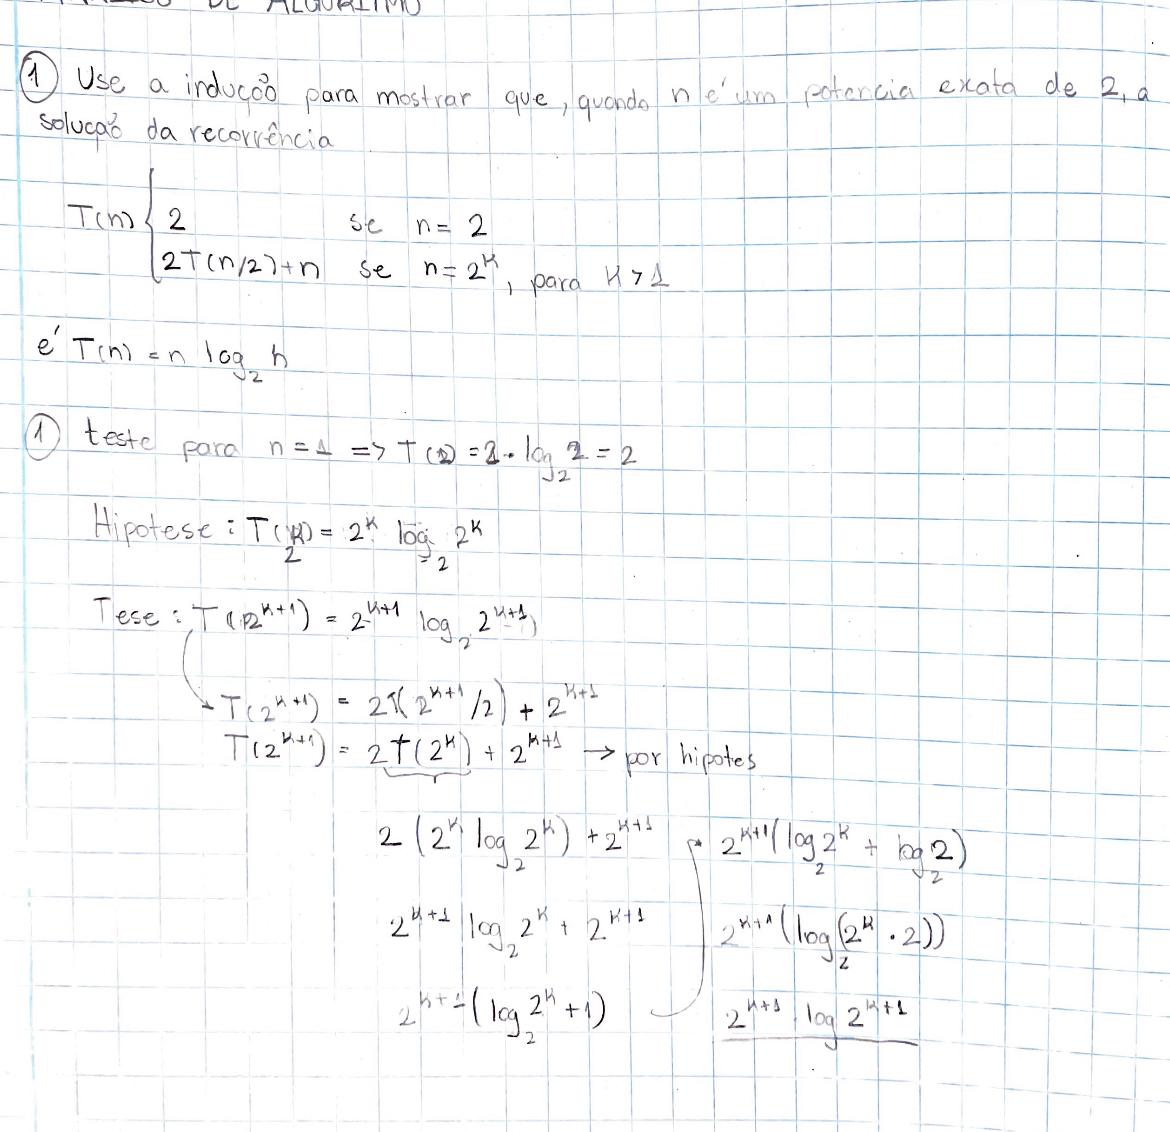 DE ALGORITMO
① Use a indução para mostrar que, quando n é um potencia exata de 2, a
solução da recorrência
T(n) { 2 se n = 2
2T(n/2)+n se n = 2^k, para k > 1
é T(n) = n log₂ n
① teste para n = 1 => T(2) = 2 · log₂ 2 = 2
Hipotese : T(2^k) = 2^k log₂ 2^k
Tese : T(2^{k+1}) = 2^{k+1} log₂ 2^{k+1}
T(2^{k+1}) = 2T(2^{k+1}/2) + 2^{k+1}
T(2^{k+1}) = 2T(2^k) + 2^{k+1} → por hipotes
2 (2^k log₂ 2^k) + 2^{k+1}
2^{k+1} log₂ 2^k + 2^{k+1}
2^{k+1} (log₂ 2^k + 1)
2^{k+1} (log₂ 2^k + log₂ 2)
2^{k+1} (log₂ (2^k · 2))
2^{k+1} log 2^{k+1}